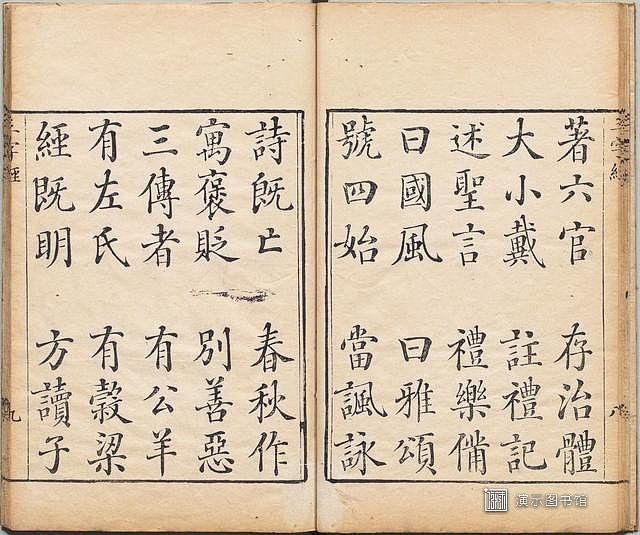 著六官 存治體
大小戴 註禮記
述聖言 禮樂俻
曰國風 曰雅頌
號四始 當諷詠
八
詩既亡 春秋作
寓褒貶 別善惡
三傳者 有公羊
有左氏 有穀梁
經既明 方讀子
九
三字經
三字經
演示图书馆